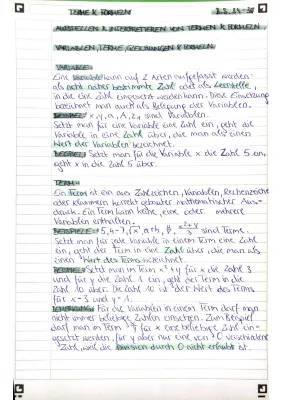 TERME & FORMELN
AUFSTELLEN & INTERPRETIEREN VON TERMEN & FORMELN
VARIABLEN, TERME, GLEICHUNGEN & FORMELN
VARIABLE:
Eine Variable kann auf 2 Arten aufgefasst werden:
als nicht näher bestimmte Zahl oder als Leerstelle,
in die eine Zahl eingesetzt werden kann. Diese Einsetzung
bezeichnet man auch als Belegung der Variablen.
BEISPIEL: x, y, a, A, Z4 sind Variablen.
Setzt man für eine Variable eine Zahl ein, geht die
Variable in eine Zahl über, die man als einen
Wert der Variablen bezeichnet.
BEISPIEL: Setzt man für die Variable x die Zahl 5 ein,
geht x in die Zahl 5 über.
TERM:
Ein Term ist ein aus Zahlzeichen, Variablen, Rechenzeichen
oder Klammern korrekt gebauter mathematischer Aus-
druck. Ein Term kann keine, eine oder mehrere
Variablen enthalten.
sind Terme.
Setzt man für jede Variable in einem Term eine Zahl
ein, geht der Term in die Zahl über, die man als
einen Wert des Terms bezeichnet.
BEISPIEL: Setzt man im Term x²+y für x die Zahl 3
und für y die Zahl 1 ein, geht der Term in die
Zahl 10 über. Die Zahl 10 ist der Wert des Terms
für x=3 und y=1.
BEMERKUNG: Für die Variablen in einem Term darf man
nicht immer beliebige Zahlen einsetzen. Zum Beispiel
darf man im Term x/y für x eine beliebige Zahl ein-
gesetzt werden, für y aber nur eine von 0 verschiedene
Zahl, weil die Division durch 0 nicht erlaubt ist.